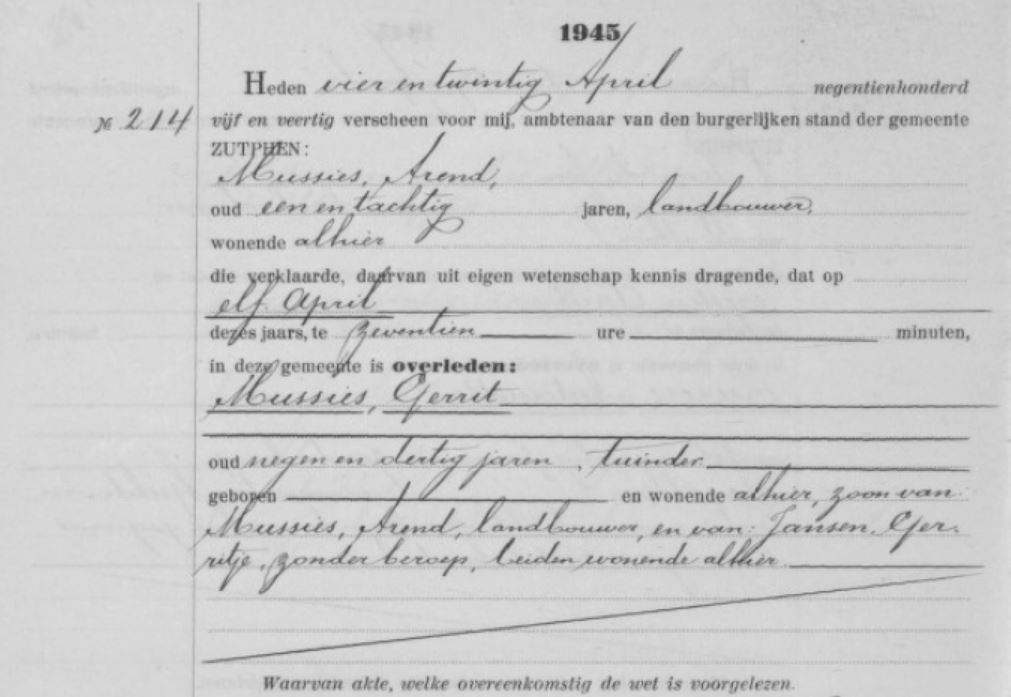 1945
Heden vier en twintig April negentienhonderd
№ 214 vijf en veertig verscheen voor mij, ambtenaar van den burgerlijken stand der gemeente
ZUTPHEN:
Mussies, Arend,
oud een en tachtig jaren, landbouwer,
wonende alhier
die verklaarde, daarvan uit eigen wetenschap kennis dragende, dat op
elf April
dezes jaars, te zeventien ure minuten,
in deze gemeente is overleden:
Mussies, Gerrit
oud negen en dertig jaren, tuinder
geboren en wonende alhier, zoon van:
Mussies, Arend, landbouwer, en van: Jansen, Ger-
ritje, zonder beroep, beiden wonende alhier.
Waarvan akte, welke overeenkomstig de wet is voorgelezen.